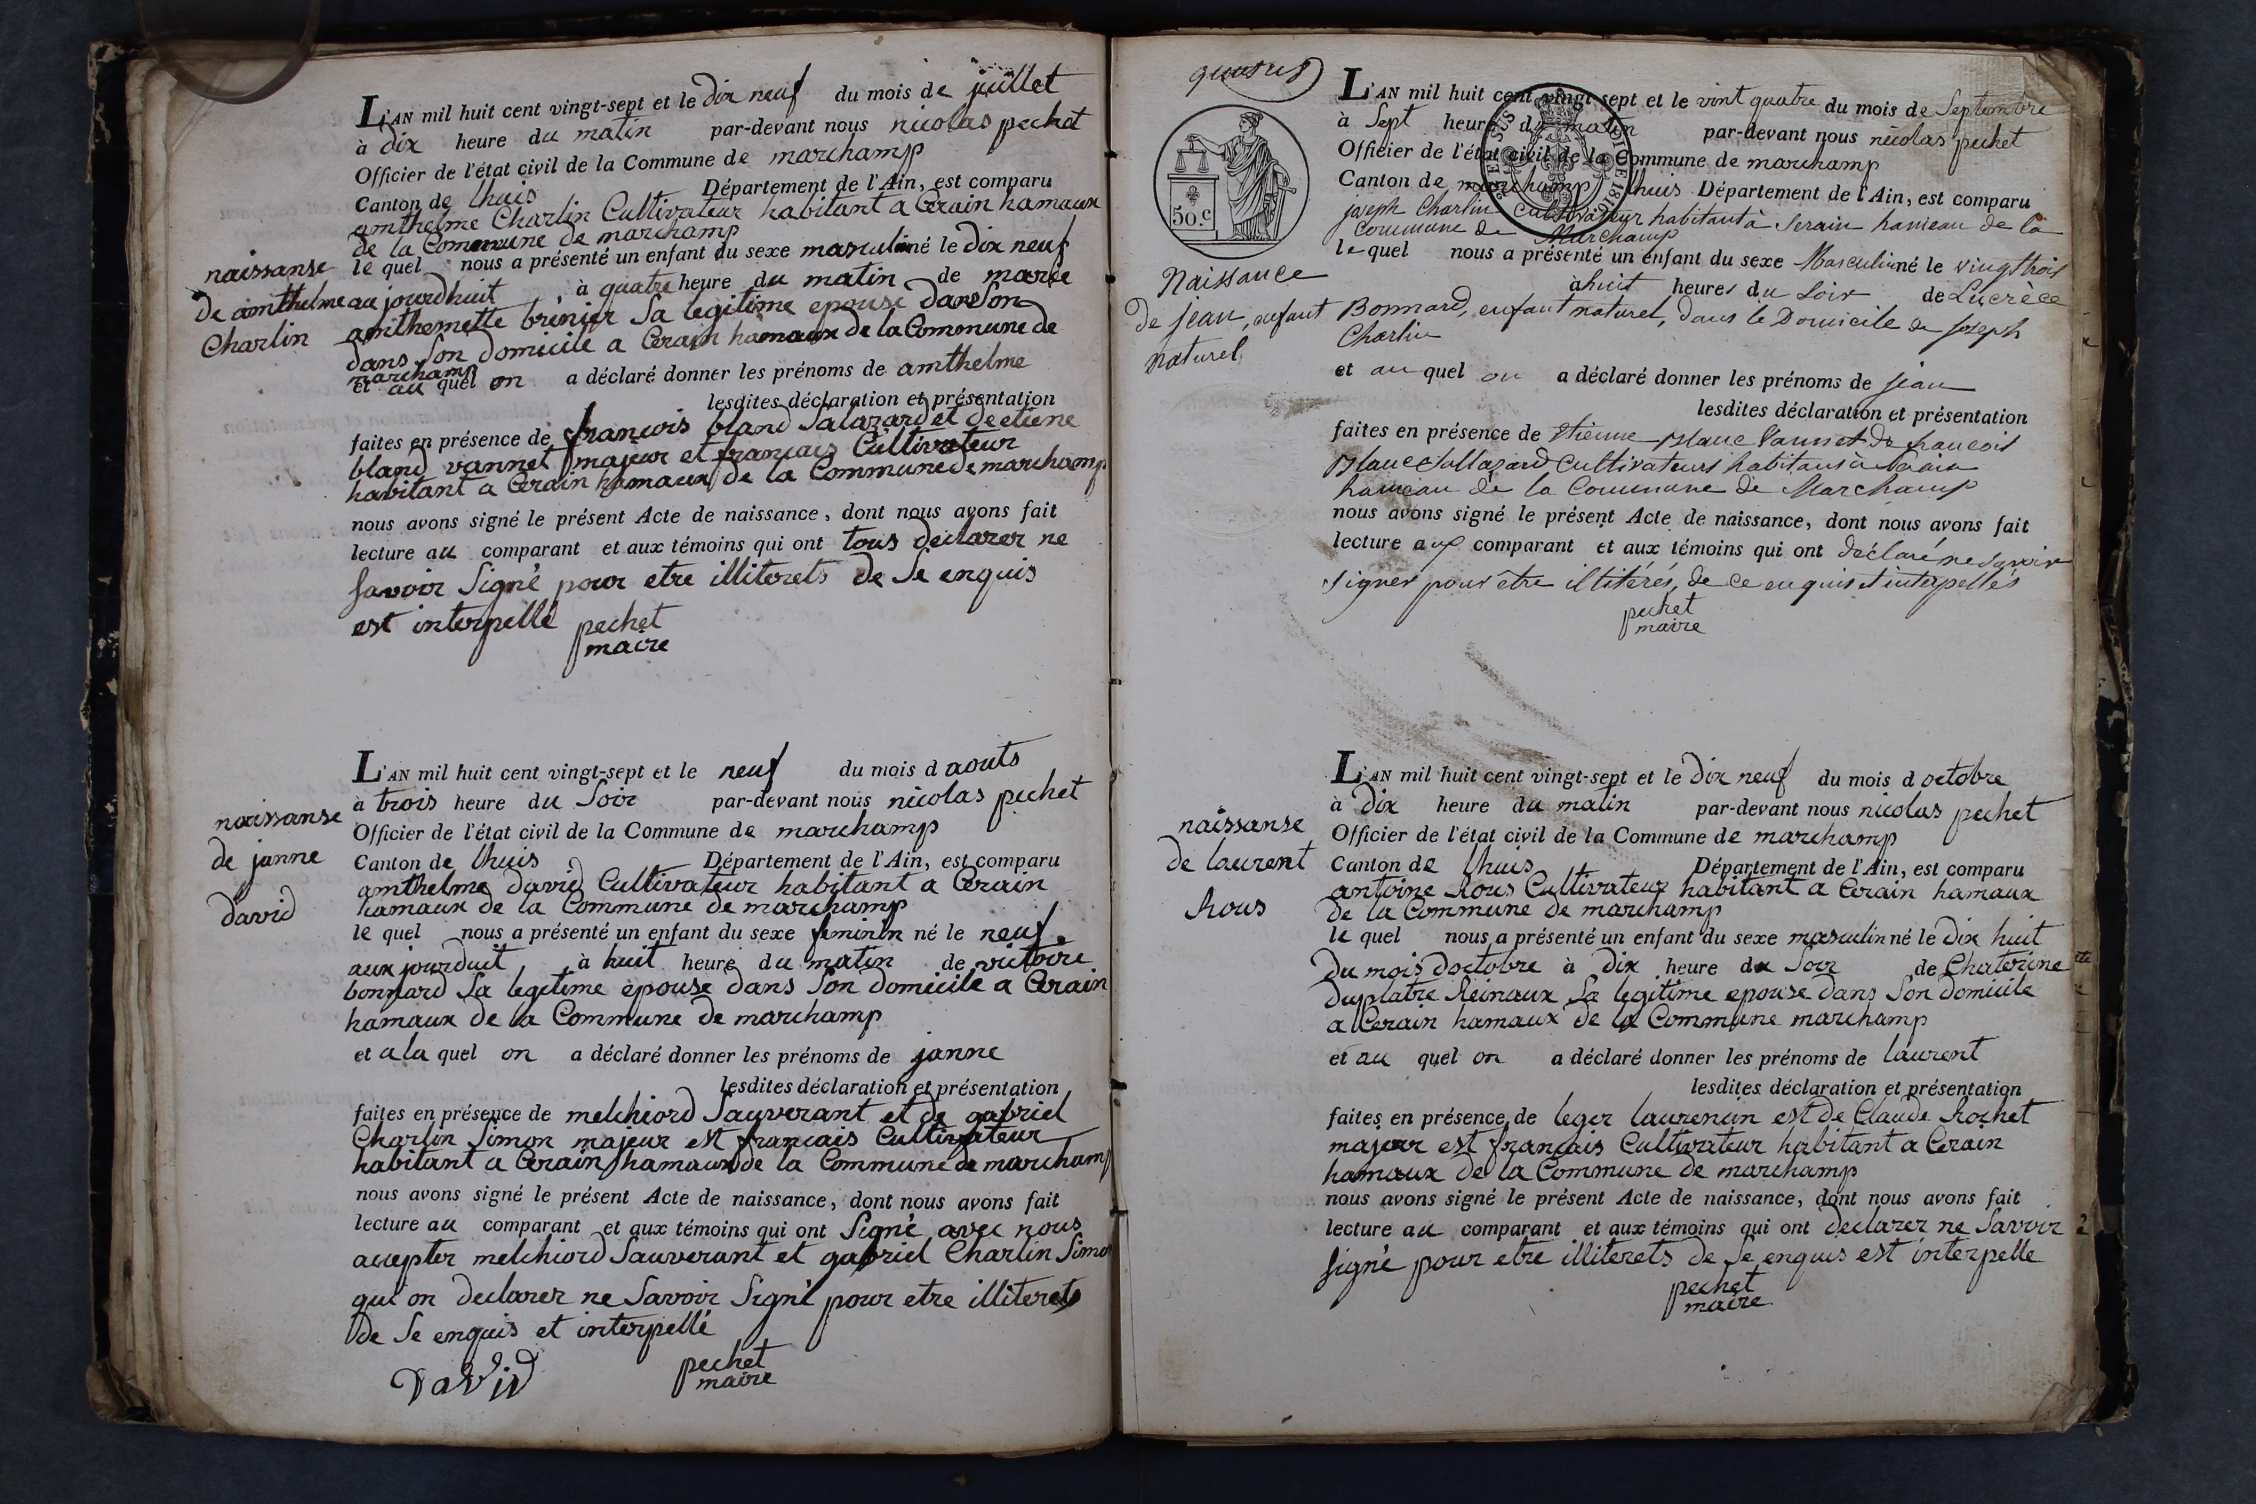 L'AN mil huit cent vingt-sept et le dix neuf du mois de juillet
à dix heure du matin par-devant nous nicolas pechet
Officier de l'état civil de la Commune de marchamp
Canton de lhuis Département de l'Ain, est comparu
amthelme Charlin Cultivateur habitant a Cerain hamaux
de la Commune de marchamp
le quel nous a présenté un enfant du sexe masculin né le dix neuf
aujourdhuit, à quatre heure du matin de marie
anthemette brinier Sa legitime epouse dans Son
dans Son domicile a Cerain hamaux de la Commune de
marchamp
et au quel on a déclaré donner les prénoms de amthelme
lesdites déclaration et présentation
faites en présence de françois bland Salazard et de etiene
bland vannet majeur et français Cultivateur
habitant a Cerain hamaux de la Commune de marchamp
nous avons signé le présent Acte de naissance, dont nous avons fait
lecture au comparant et aux témoins qui ont tous declarer ne
Savoir Signé pour etre illiterets de Se enquis
est interpellé pechet
maire
naissanse
de amthelme
Charlin
L'AN mil huit cent vingt-sept et le neuf du mois d aouts
à trois heure du Soir par-devant nous nicolas pechet
Officier de l'état civil de la Commune de marchamp
Canton de lhuis Département de l'Ain, est comparu
amthelme david Cultivateur habitant a Cerain
hamaux de la Commune de marchamp
le quel nous a présenté un enfant du sexe feminin né le neuf
aux jourduit, à huit heure du matin de victoire
bonnard Sa legitime epouse dans Son domicile a Cerain
hamaux de la Commune de marchamp
et a la quel on a déclaré donner les prénoms de janne
lesdites déclaration et présentation
faites en présence de melchiord Sauverant et de gabriel
Charlin Simon majeur est français Cultivateur
habitant a Cerain hamaux de la Commune de marchamp
nous avons signé le présent Acte de naissance, dont nous avons fait
lecture au comparant et aux témoins qui ont Signé avec nous
accepter melchiord Sauverant et gabriel Charlin Simon
qui on declarer ne Savoir Signé pour etre illiterets
de Se enquis et interpellé
David pechet
maire
naissanse
de janne
david
L'AN mil huit cent vingt-sept et le vint quatre du mois de Septembre
à Sept heure du matin par-devant nous nicolas pechet
Officier de l'état civil de la Commune de marchamp
Canton de marchamp lhuis Département de l'Ain, est comparu
joseph Charlin Cultivateur habitant à Serain hameau de la
Commune de Marchamp
le quel nous a présenté un enfant du sexe Masculin né le vingt trois
à huit heures du Soir de Lucrèce
Bonnard, enfant naturel, dans le Domicile de Joseph
Charlin
et au quel on a déclaré donner les prénoms de jean
lesdites déclaration et présentation
faites en présence de Etienne Blanc Vannet de francois
Blanc Sallazard Cultivateurs habitans à
hameau de la Commune de Marchamp
nous avons signé le présent Acte de naissance, dont nous avons fait
lecture aux comparant et aux témoins qui ont déclaré ne Savoir
Signer pour être illitérés, de ce enquis et interpellés
pechet
maire
50.c
Naissance
de jean, enfant
naturel
L'AN mil huit cent vingt-sept et le dix neuf du mois d octobre
à dix heure du matin par-devant nous nicolas pechet
Officier de l'état civil de la Commune de marchamp
Canton de lhuis Département de l'Ain, est comparu
antoine Rous Cultivateur habitant a Cerain hamaux
de la Commune de marchamp
le quel nous a présenté un enfant du sexe masculin né le dix huit
du mois doctobre à dix heure du Soir de Chaterine
duplatre Reinaux Sa legitime epouse dans Son domicile
a Cerain hamaux de la Commune marchamp
et au quel on a déclaré donner les prénoms de laurent
lesdites déclaration et présentation
faites en présence de leger laurencin est de Claude Rochet
majeur est français Cultivateur habitant a Cerain
hamaux de la Commune de marchamp
nous avons signé le présent Acte de naissance, dont nous avons fait
lecture au comparant et aux témoins qui ont declarer ne Savoir
Signé pour etre illiterets de Se enquis est interpelle
pechet
maire
naissanse
de laurent
Rous